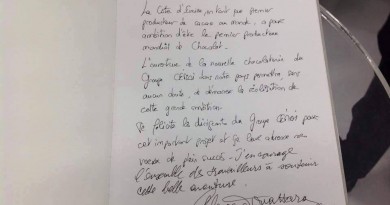 La Côte d'Ivoire, en tant que premier
producteur de cacao au monde, a pour
ambition d'être le premier producteur
mondial de Chocolat.
L'ouverture de la nouvelle chocolaterie du
Groupe CÉMOI dans notre pays permettra, sans
aucun doute, de la réalisation de
cette grande ambition.
Je félicite les dirigeants du Groupe CÉMOI pour
cet important projet et je leur adresse mes
voeux de plein succès. J'encourage
l'ensemble des travailleurs à
cette belle aventure.